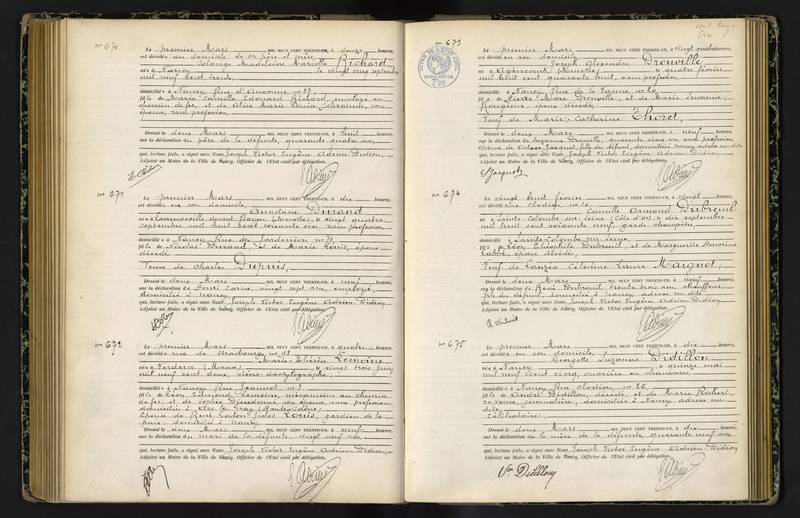 No 670
Le premier Mars MIL NEUF CENT TRENTE-UN, à douze heures,
est décédée au domicile de ses père et mère
Solange Madeleine Marcelle Richard
née à Nancy le vingt cinq septembre
mil neuf cent trente,
domiciliée à Nancy, Rue 27,
fille de Marie Camille Edouard Richard, employé au
chemin de fer, et de Maria son
épouse, sans profession
Dressé le deux Mars à huit heures,
sur la déclaration du père de la défunte, quarante quatre ans,
qui, lecture faite, a signé avec Nous Joseph Victor Eugène Adrien Didion,
Adjoint au Maire de la Ville de Nancy, Officier de l'Etat civil par délégation.
No 671
Le premier Mars MIL NEUF CENT TRENTE-UN, à dix heures,
est décédée en son domicile,
Anastasie Durand
née à Laneuveville devant (Meurthe), le vingt quatre
septembre mil huit cent soixante six, sans profession
domiciliée à Nancy, Rue des Jardiniers no
fille de Nicolas Durand et de Marie Louis, époux
décédés,
Veuve de Charles Dupuis,
Dressé le deux Mars à neuf heures,
sur la déclaration de Henri vingt sept ans, employé,
domicilié à Nancy
qui, lecture faite, a signé avec Nous Joseph Victor Eugène Adrien Didion
Adjoint au Maire de la Ville de Nancy, Officier de l'Etat civil par délégation.
No 672
Le premier Mars MIL NEUF CENT TRENTE-UN, à quatre heures,
est décédée rue de Strasbourg, no
Marie Thérèse Lemoine
née à Verdun (Meuse) le vingt trois juin
mil neuf cent deux, sténo dactylographe,
domiciliée à Nancy, Rue Jeannot no 3,
fille de Léon Edmond Lemoine, mécanicien au chemin
de fer, et de Sophie Dieudonné son épouse, sans profession
domiciliés à Arc les Gray (Haute Saône)
Epouse de René Charles Louis, gardien de la
paix, domicilié à Nancy
Dressé le deux Mars à neuf heures,
sur la déclaration du mari de la défunte, vingt neuf ans,
qui, lecture faite, a signé avec Nous Joseph Victor Eugène Adrien Didion,
Adjoint au Maire de la Ville de Nancy, Officier de l'Etat civil par délégation.
No 673
Le premier Mars MIL NEUF CENT TRENTE-UN, à vingt quatre heures,
est décédé en son domicile,
Joseph Alexandre Drouville
né à Agincourt (Meurthe) le quatre février
mil huit cent quarante huit, sans profession,
domicilié à Nancy, Rue de la
fils de Pierre Marc Drouville, et de Marie Suzanne
Rougieux, époux décédés
Veuf de Marie Catherine Thoret,
Dressé le deux Mars à neuf heures,
sur la déclaration de Suzanne Drouville, quarante cinq ans, sans profession
épouse de Victor Jacquot, fille du défunt, domiciliée à Nancy
qui, lecture faite, a signé avec Nous Joseph Victor Eugène Adrien Didion
Adjoint au Maire de la Ville de Nancy, Officier de l'Etat civil par délégation.
No 674
Le vingt huit février MIL NEUF CENT TRENTE-UN, à vingt heures,
est décédé rue
Camille Armand Dubreuil
né à Sainte Colombe sur Seine (Côte d'Or), le dix septembre
mil huit cent soixante neuf, garde champêtre,
domicilié à Sainte Colombe sur Seine
fils de Léon Théophile Dubreuil, et de Marguerite Honorine
époux décédés,
Veuf de Célestine Laure Maignot,
Dressé le deux Mars à neuf heures,
sur la déclaration de René Dubreuil, trente trois ans, chauffeur,
fils du défunt, domicilié à Nancy
qui, lecture faite, a signé avec Nous Joseph Victor Eugène Adrien Didion
Adjoint au Maire de la Ville de Nancy, Officier de l'Etat civil par délégation.
No 675
Le premier Mars MIL NEUF CENT TRENTE-UN, à dix heures,
est décédée en son domicile,
Georgette Suzanne Didillon
née à Nancy le quinze mai
mil neuf cent cinq, ouvrière en chaussures,
domiciliée à Nancy, Rue Clodion, no 26,
fille de André Didillon, décédé, et de Marie Richert,
sa veuve, journalière, domiciliée à Nancy, adresse su-
dite
Célibataire
Dressé le deux Mars à dix heures,
sur la déclaration de la mère de la défunte, quarante neuf ans
qui, lecture faite, a signé avec Nous Joseph Victor Eugène Adrien Didion
Adjoint au Maire de la Ville de Nancy, Officier de l'Etat civil par délégation.
Vve Didillon